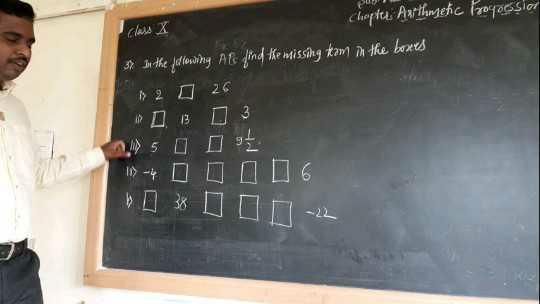 Chapter: Arithmetic Progression
Class X
3) In the following APs find the missing term in the boxes
i) 2 □ 26
ii) □, 13 □ 3
iii) 5 □ □ 9 1/2.
iv) -4 □ □ □ □ 6
v) □ 38 □ □ □ -22